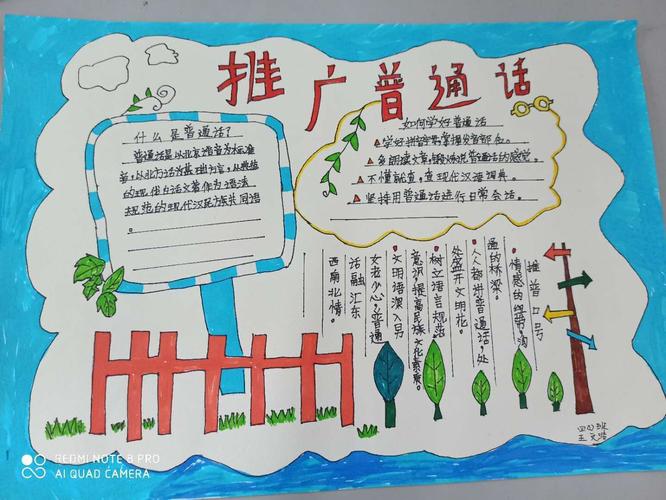 推广普通话
什么是普通话?
普通话是以北京语音为标准
音,以北方话为基础方言,以典范
的现代白话文著作为语法
规范的现代汉民族共同语
。
如何学好普通话
学好拼音,掌握发音部位。
多朗读文章,锻炼说普通话的感觉。
不懂就查,查现代汉语词典。
坚持用普通话进行日常会话。
推普口号
情感的纽带,沟
通的桥梁。
人人都讲普通话,处
处盛开文明花。
树立语言规范
意识,提高民族文化素质。
文明语深入男
女老少心,普通
话融汇东
西南北情。
REDMI NOTE 8 PRO
AI QUAD CAMERA